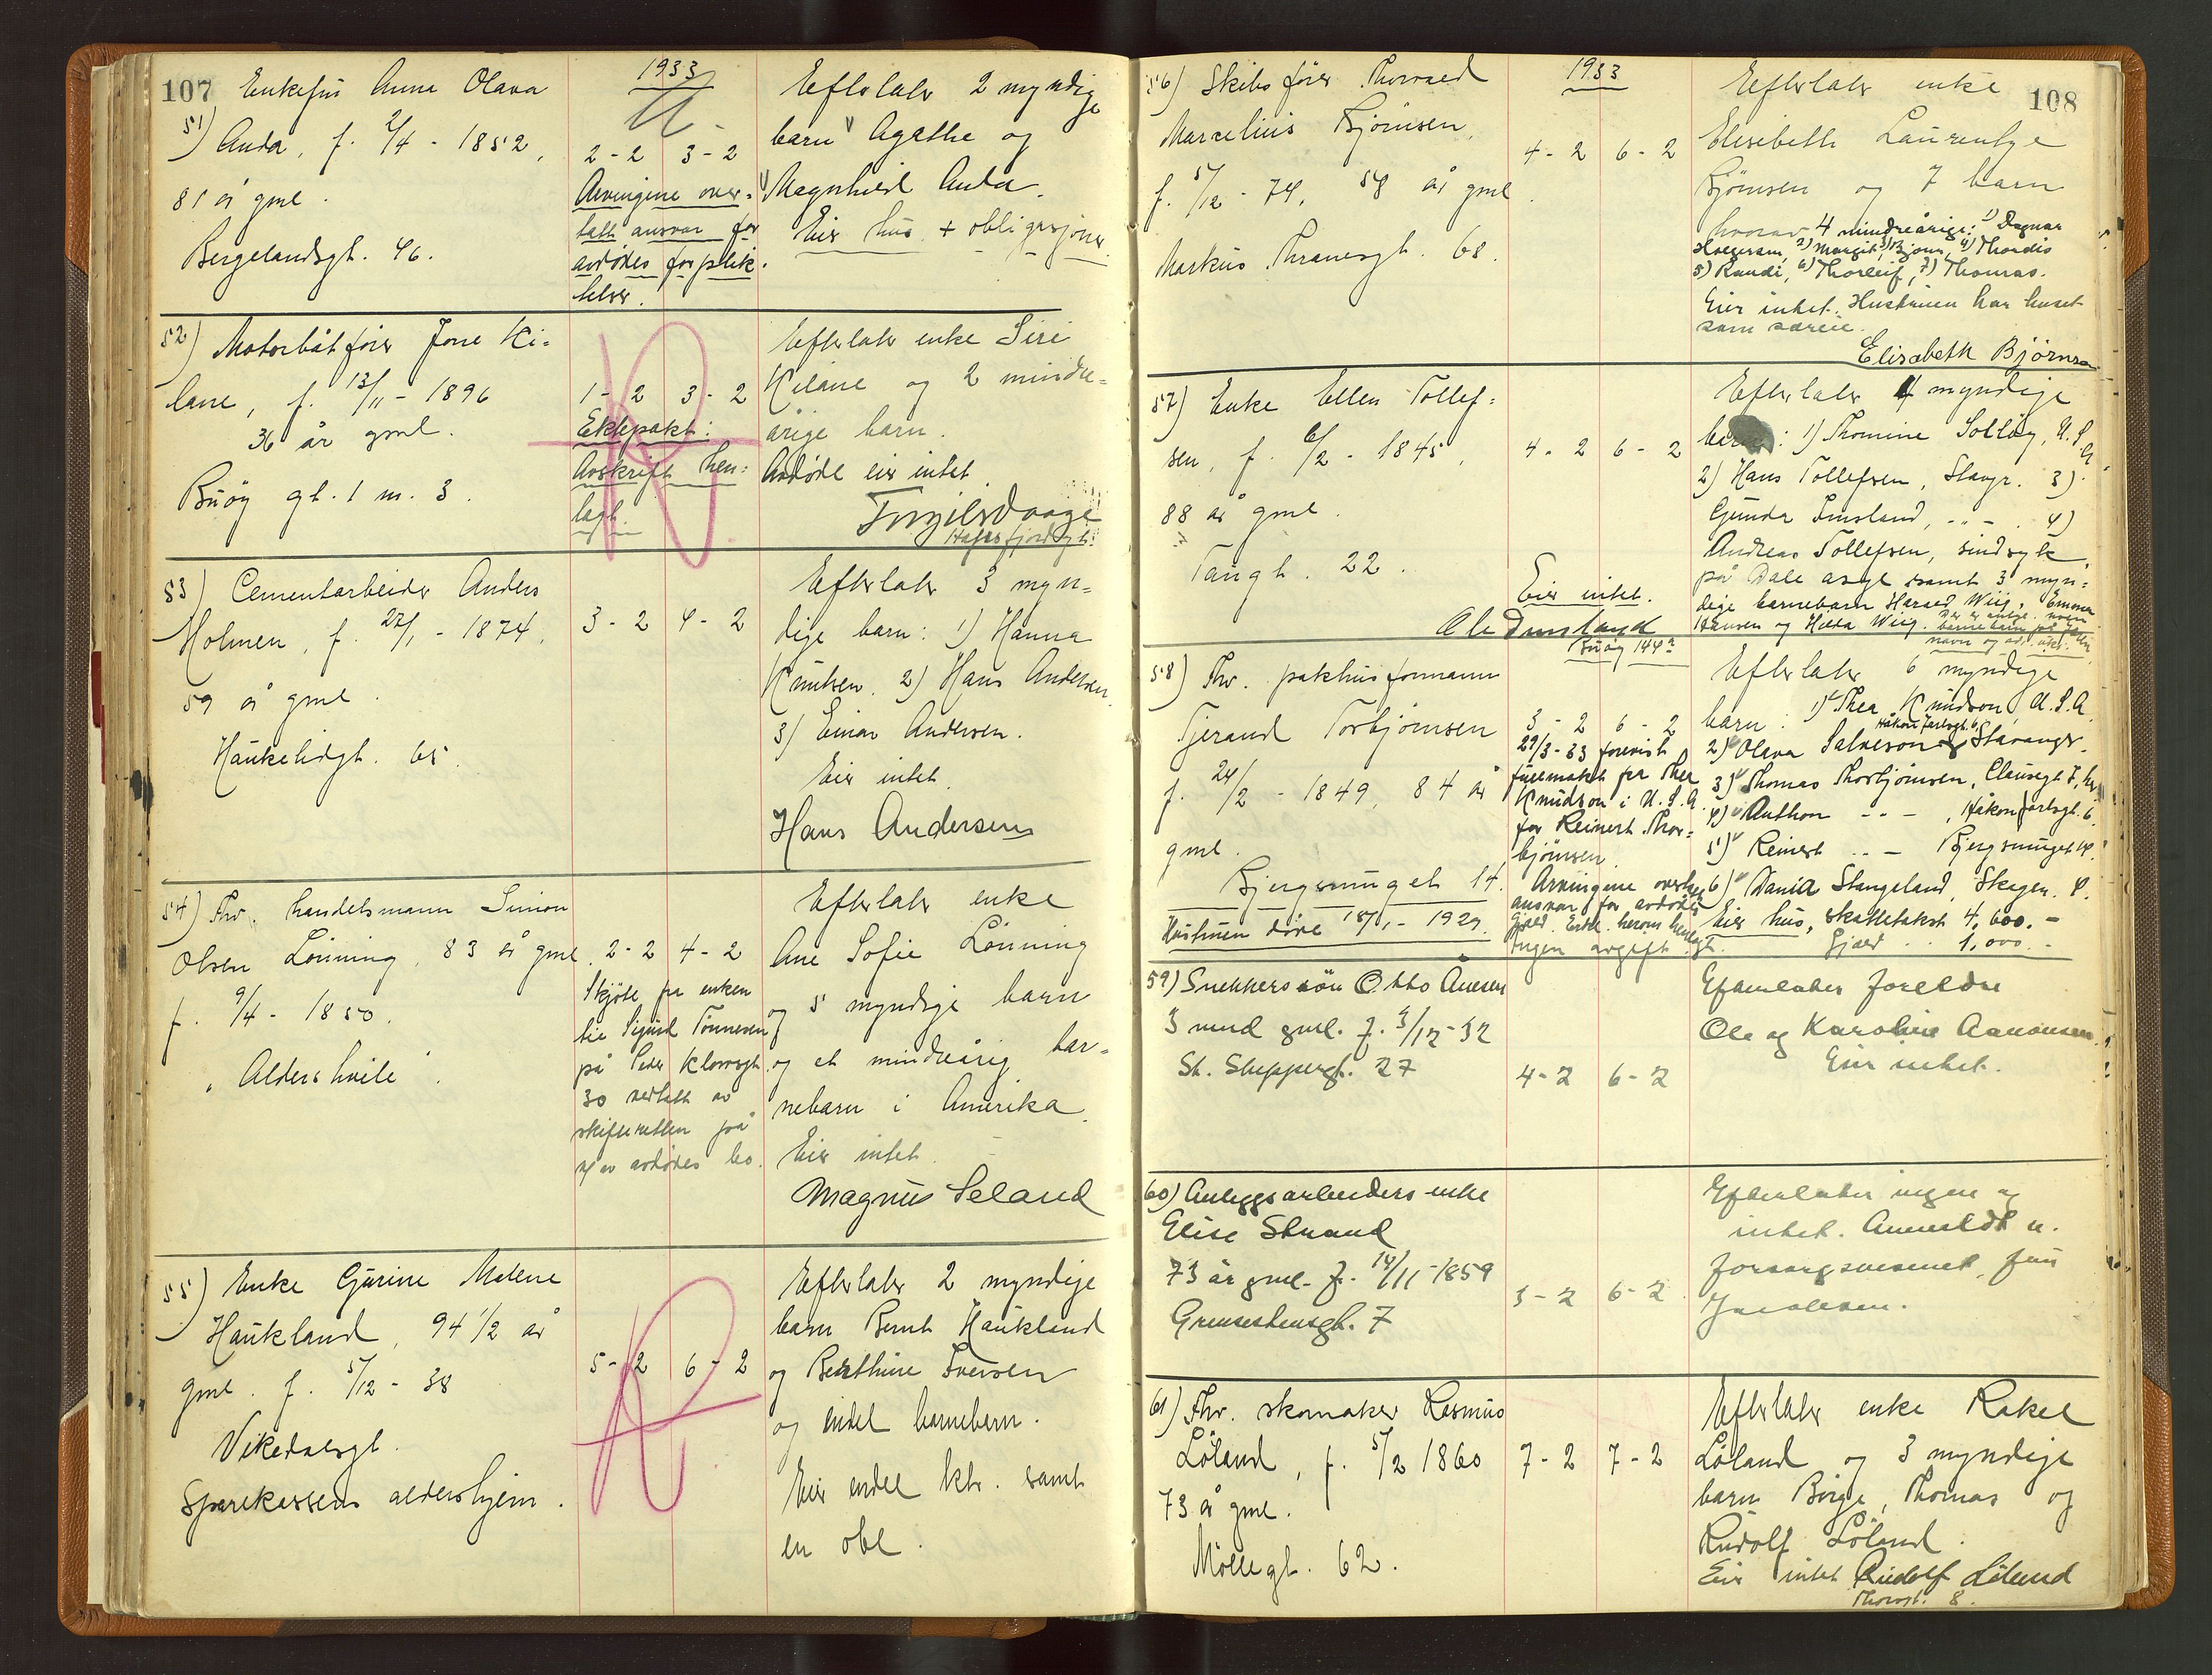 107
1933
51) Enkefru Anna Olava
Anda, f. 2/4 - 1852,
81 år gml.
Bergelandsgt. 46.
2-2 3-2
Arvingene over-
tatt ansvar for
avdødes forplik-
telser.
Efterlater 2 myndige
barn Agathe og
Magnhild Anda.
Eier hus + obligasjoner.
52) Motorbåtfører Jone Ki-
lane, f. 13/11 - 1896
36 år gml.
Buøy gt. 1 m. 3.
1-2 3-2
Ektepakt:
Avskrift hen-
lagt.
Efterlater enke Siri
Kilane og 2 mindre-
årige barn.
Avdøde eier intet.
Hafrsfjordgt.
53) Cementarbeider Anders
Holmen, f. 27/1 - 1874,
59 år gml.
Haukeligt. 65.
3-2 4-2
Efterlater 3 myn-
dige barn: 1) Hanna
Knutsen. 2) Hans Andersen
3) Einar Andersen.
Eier intet.
Hans Andersen
54) Fhv. handelsmann Simon
Olsen Lønning, 83 år gml.
f. 9/4 - 1850.
"Aldershvile".
2-2 4-2
Skjøte fra enken
til Sigurd Tønnesen
på Peder Klowsgt.
30 vedtatt av
skifteretten på
av avdødes bo.
Efterlater enke
Ane Sofie Lønning
og 5 myndige barn
og et mindreårig bar-
nebarn i Amerika.
Eier intet.
Magnus Seland
55) Enke Gurine Malene
Haukland, 94 1/2 år
gml. f. 5/12 - 38
Vikedalsgt.
Sparekassens aldershjem.
5-2 6-2
Efterlater 2 myndige
barn Bernt Haukland
og Berthine Iversen
og endel barnebarn.
Eier endel ktr. samt
en obl.
108
1933
56) Skibsfører Thorvald
Marcelius Bjørnsen,
f. 5/12 - 74, 58 år gml.
Markus Thranesgt. 68.
4-2 6-2
Efterlater enke
Elisabeth Laurentze
Bjørnsen og 7 barn
hvorav 4 mindreårige: 1) Dagnar
2) Margit, 3) Bjørn, 4) Thordis
5) Randi, 6) Thorleif, 7) Thomas.
Eier intet. Hustruen har huset
som særeie.
Elisabeth Bjørnsen
57) Enke Ellen Tollef-
sen, f. 6/2 - 1845,
88 år gml.
Taugt. 22.
4-2 6-2
Eier intet.
Efterlater 4 myndige
barn: 1) Thomine Solløy, U.S.A.
2) Hans Tollefsen, Stavgr. 3)
Gunda Imsland, - " - . 4)
Andreas Tollefsen, sindsyk
på Dale asyl samt 3 myn-
dige barnebarn Harald Wiig, Emma
Hansen og Hilda Wiig.
Ole Imsland
Buøy 144
58) Fhv. pakhusformann
Tjerand Torbjørnsen
f. 24/2 - 1849, 84 år
gml.
Bjergsmuget 14.
Hustruen døde 18/1 - 1929.
3-2 6-2
29/3-33 forevist
fullmakt fra Thea
Knudson i U.S.A.
for Reinert Thor-
bjørnsen.
Arvingene overtatt
ansvar for avdødes
gjeld. Erkl. herom henlagt.
Ingen avgift.
Efterlater 6 myndige
barn: 1) Thea Knudson, U.S.A.
Håkon Jarlsgt. 6
2) Olava Salveson, Stavanger.
3) Thomas Thorbjørnsen, Clausegt 7, her
4) Anthon - " - , Håkon Jarlsgt. 6
5) Reinert - " - Bjergsmuget 14.
6) Dania Stangeland, Skagen. 8.
Eier hus, skattetakst 4,600.-
Gjeld - " - 1,000.-
59) Snekkers søn Otto Ånesen
3 mnd gml. f. 3/12-32
St. Skippergt. 27
4-2 6-2
Efterlater foreldre
Ole og Karoline Aanensen.
Eier intet.
60) Anleggsarbeiders enke
Elise Strand
73 år gml. f. 14/11-1859
Grensestensgt. 7
3-2 6-2
Efterlater ingen og
intet. Anmeldt av
forsorgsvesenet, fru
Jacobsen.
61) Fhv. skomaker Rasmus
Løland, f. 5/2 1860
73 år gml.
Møllegt. 62.
7-2 7-2
Efterlater enke Rakel
Løland og 3 myndige
barn Børge, Thomas og
Rudolf Løland.
Eier intet. Rudolf Løland
8.